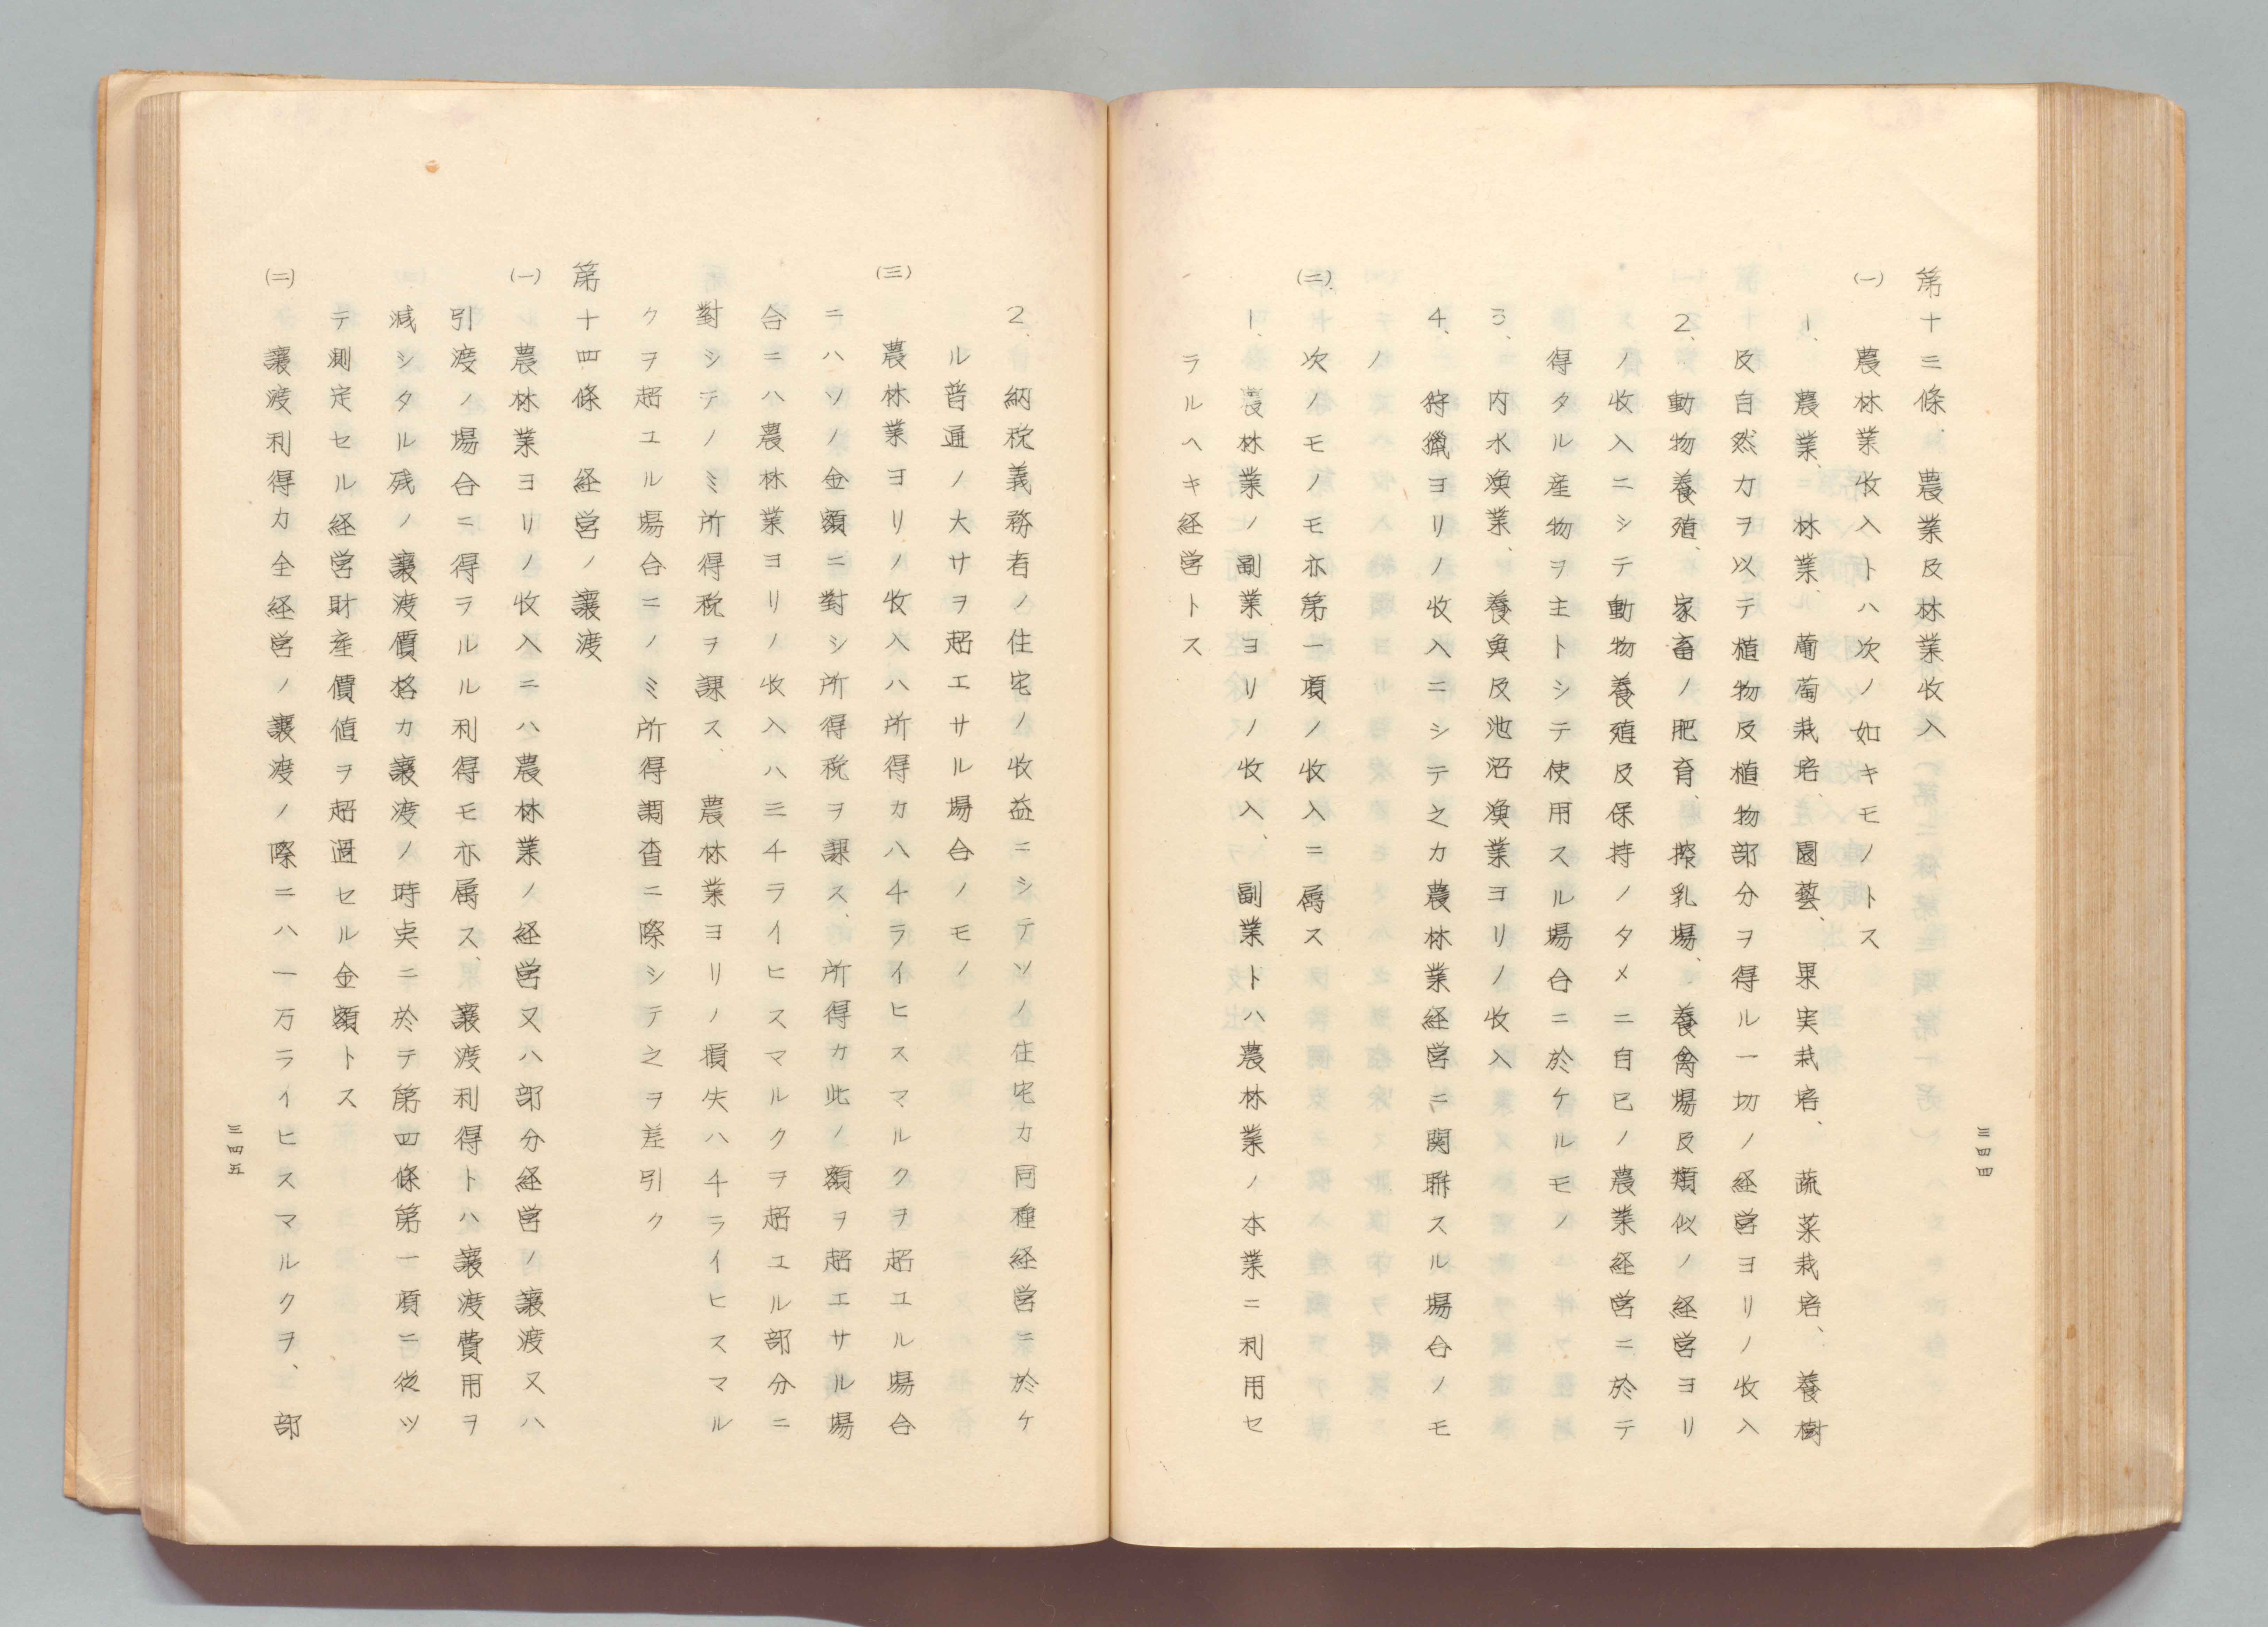 三四四
第十三條、農業及林業収入
(一)農林業収入トハ次ノ如キモノトス
1、農業、林業、葡萄栽培、園藝、果実栽培、蔬菜栽培、養樹
及自然力ヲ以テ植物及植物部分ヲ得ル一切ノ経営ヨリノ収入
2、動物養殖、家畜ノ肥育、搾乳場、養禽場及類似ノ経営ヨリ
ノ収入ニシテ動物養殖及保持ノタメニ自己ノ農業経営ニ於テ
得タル産物ヲ主トシテ使用スル場合ニ於ケルモノ
3、内水漁業、養魚及池沼漁業ヨリノ収入
4、狩獵ヨリノ収入ニシテ之カ農林業経営ニ関聯スル場合ノモ
ノ
(二)次ノモノモ亦第一項ノ収入ニ属ス
1、農林業ノ副業ヨリノ収入、副業トハ農林業ノ本業ニ利用セ
ラルヘキ経営トス
2、納税義務者ノ住宅ノ收益ニシテソノ住宅カ同種経営ニ於ケ
ル普通ノ大サヲ超エサル場合ノモノ
(三)農林業ヨリノ收入ハ所得カ八千ライヒスマルクヲ超ユル場合
ニハソノ金額ニ對シ所得税ヲ課ス、所得カ此ノ額ヲ超エサル場
合ニハ農林業ヨリノ收入ハ三千ライヒスマルクヲ超エル部分ニ
對シテノミ所得税ヲ課ス、農林業ヨリノ損失ハ千ライヒスマル
クヲ超ユル場合ニノミ所得調査ニ際シテ之ヲ差引ク
第十四條　経営ノ讓渡
(一)農林業ヨリノ收入ニハ農林業ノ経営又ハ部分経営ノ讓渡又ハ
引渡ノ場合ニ得ラルル利得モ亦属ス、讓渡利得トハ讓渡費用ヲ
減シタル残ノ讓渡價格カ讓渡ノ時実ニ於テ第四條第一項ニ従ツ
テ測定セル経営財産價値ヲ超過セル金額トス
(二)讓渡利得カ全経営ノ讓渡ノ際ニハ一万ライヒスマルクヲ、部
三四五